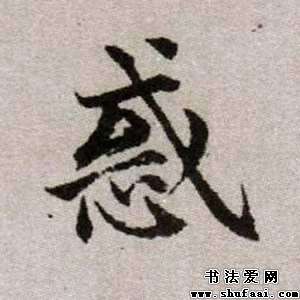 惑
书法爱网
www.shufaai.com